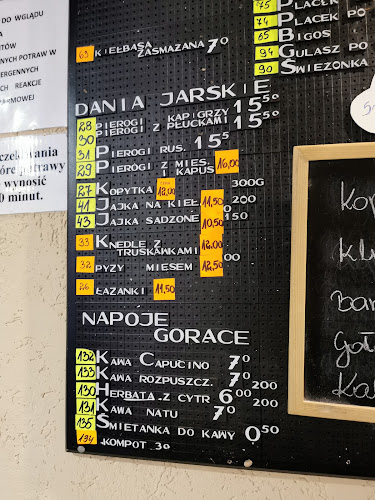 DO WGLĄDU
POTRAW W
ERGENNYCH
REAKCJE
czekiwania
óre potrawy
wynosić
0 minut.
63 KIEŁBASA
ZASMAŻANA 7⁰
75 PLACEK
74 PLACEK PO
65 BIGOS
94 GULASZ PO
90 ŚWIEŻONKA
DANIA JARSKIE
28 PIEROGI Z KAP I GRZY 15⁵⁰
30 PIEROGI Z PŁUCKAMI 15⁵⁰
31 PIEROGI RUS. 15⁵
29 PIEROGI Z MIES.
I KAPUS 16,00
27 KOPYTKA 12,00 300G
41 JAJKA NA KIEŁ 11,50 200
43 JAJKA SADZONE 10,50 150
33 KNEDLE Z
TRUSKAWKAMI 12,00
32 PYZY MIESEM 12,50 00
26 ŁAZANKI 11,50
NAPOJE
GORACE
132 KAWA CAPUCINO 7⁰
133 KAWA ROZPUSZCZ. 7⁰ 200
130 HERBATA.Z CYTR 6⁰⁰ 200
131 KAWA NATU 7⁰ 200
135 ŚMIETANKA DO KAWY 0⁵⁰
134 KOMPOT 3⁰